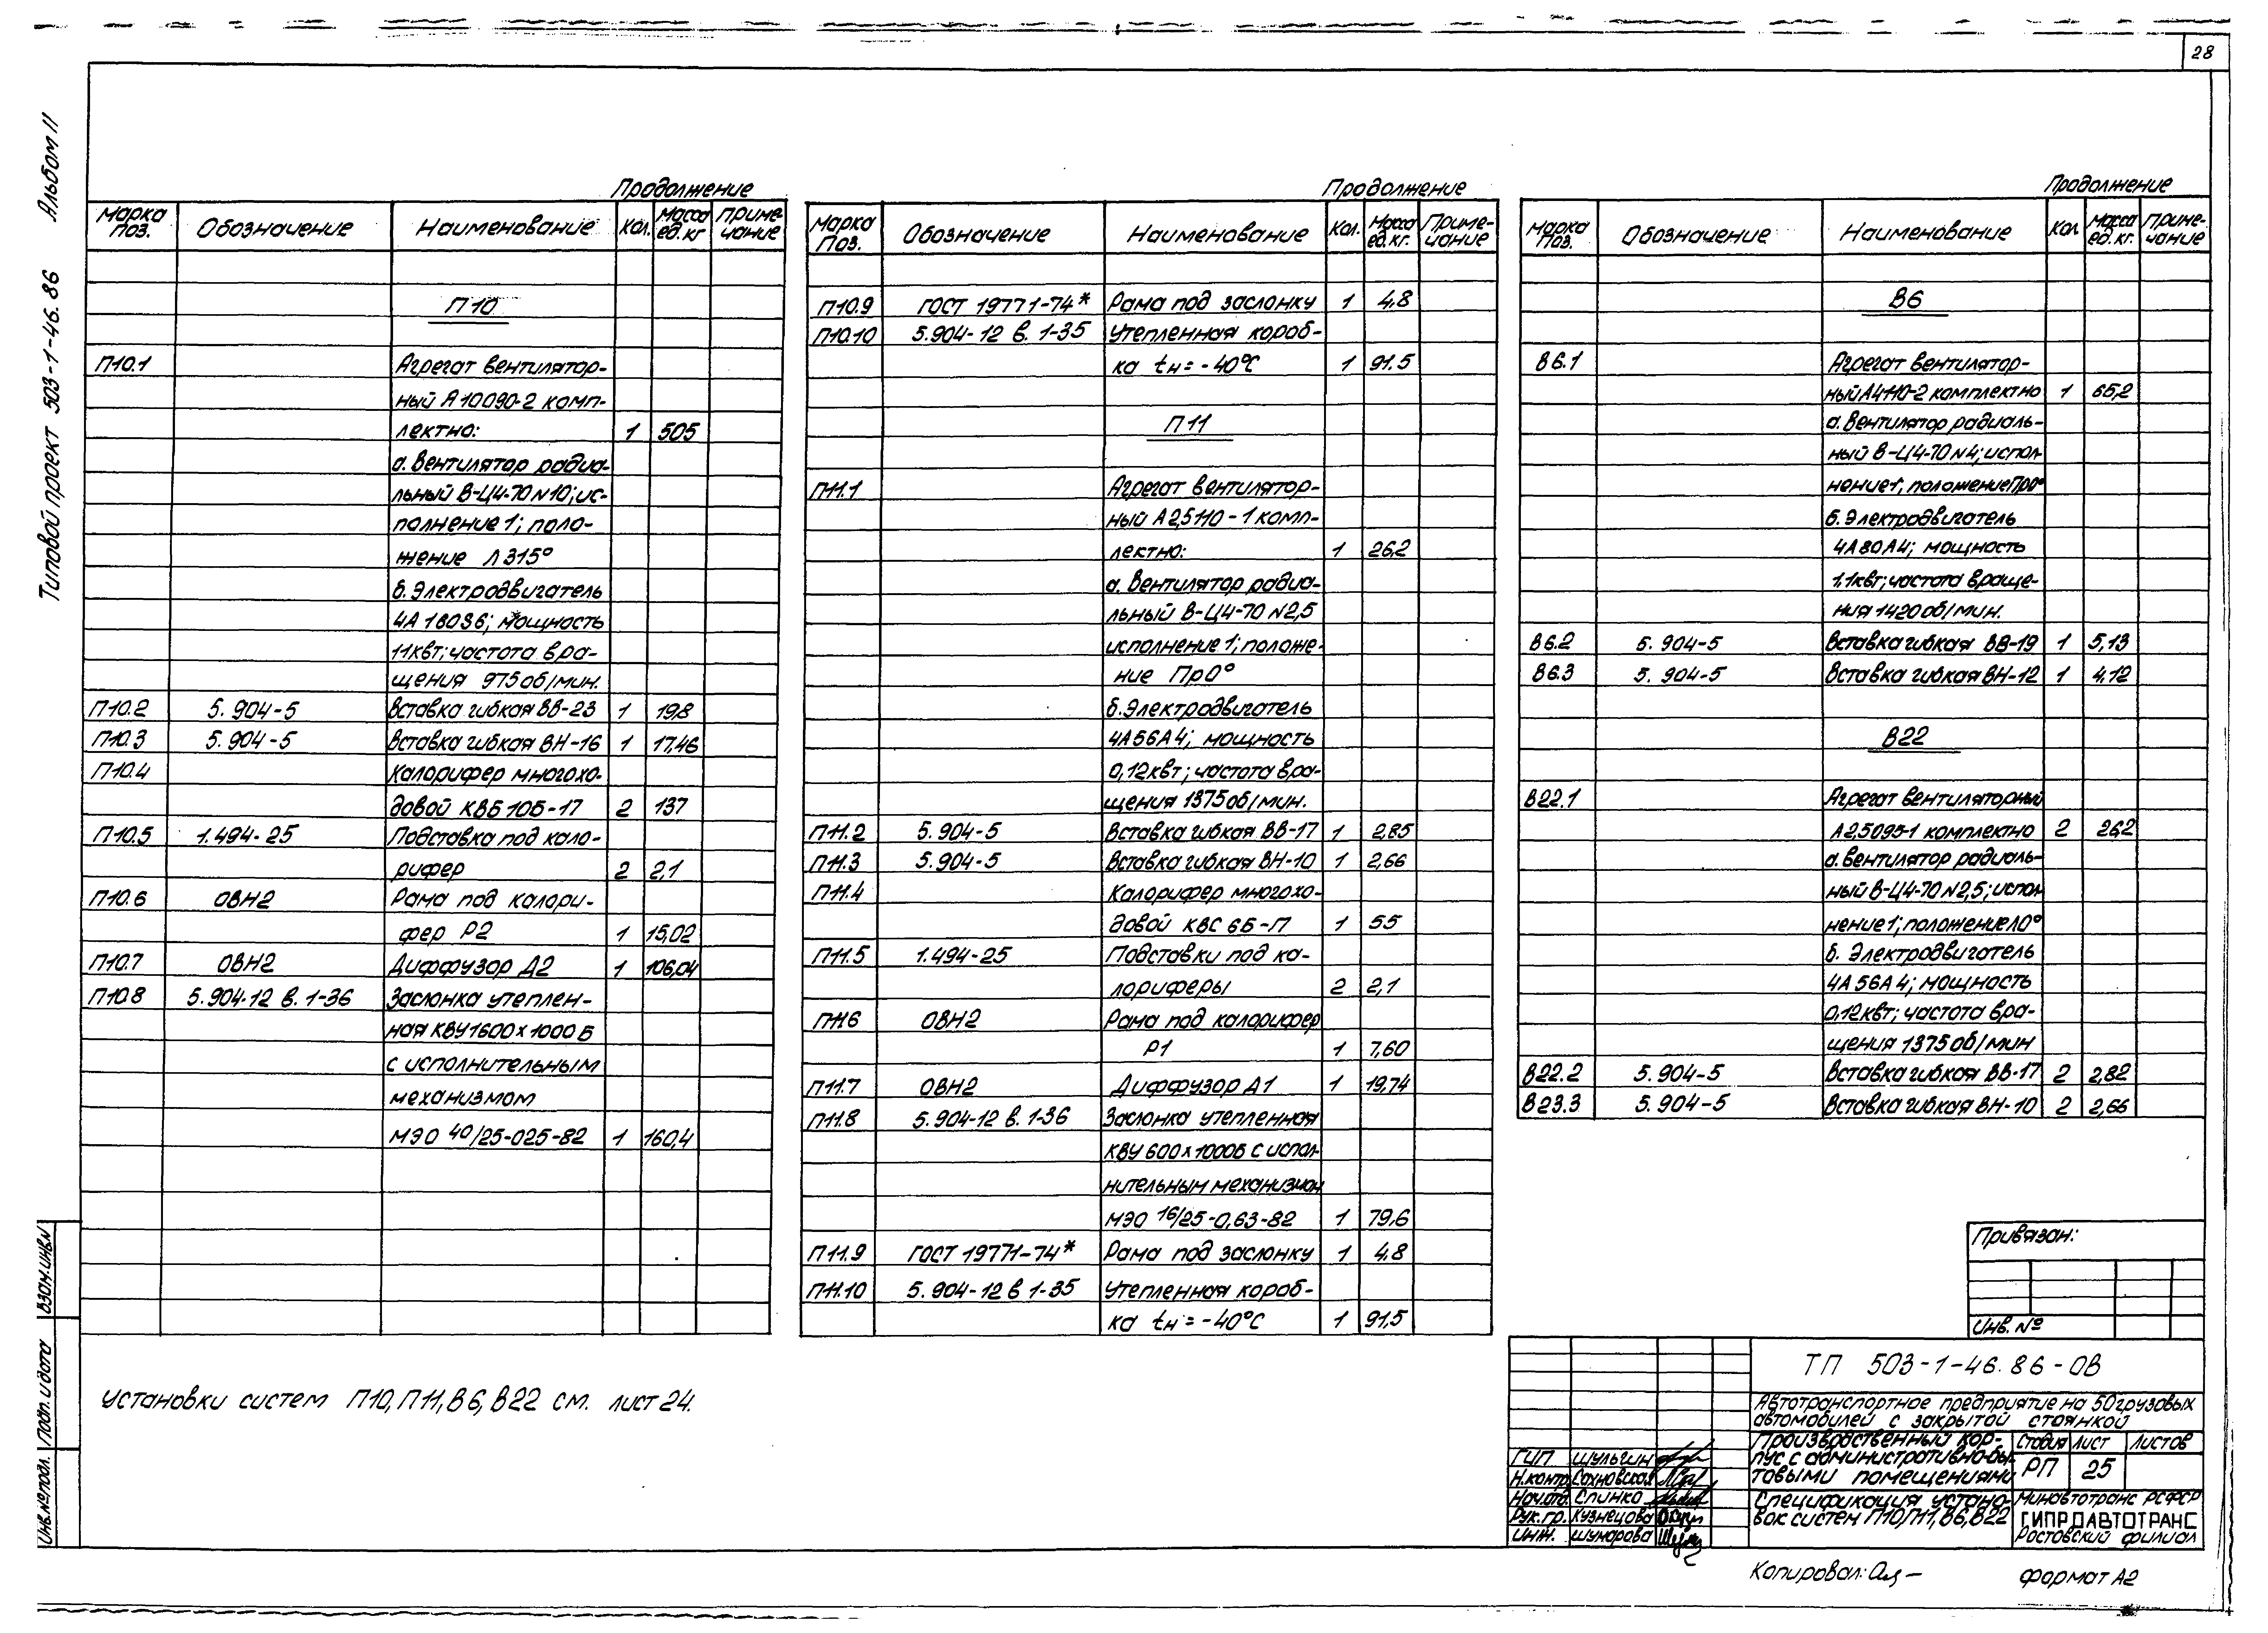 28
Альбом II
Типовой проект 503-1-46.86
Продолжение
Марка поз. Обозначение Наименование Кол. Масса ед.кг Примечание
П10
П10.1 Агрегат вентилятор-
ный А10090-2 комп-
лектно: 1 505
а. Вентилятор радиа-
льный В-Ц4-70 №10; ис-
полнение 1; поло-
жение Л315°
б. Электродвигатель
4А160S6; мощность
11квт; частота вра-
щения 975об/мин.
П10.2 5.904-5 Вставка гибкая ВВ-23 1 19,8
П10.3 5.904-5 Вставка гибкая ВН-16 1 17,46
П10.4 Калорифер многохо-
довой КВБ 10Б-П 2 137
П10.5 1.494-25 Подставка под кало-
рифер 2 2,1
П10.6 ОВН2 Рама под калори-
фер Р2 1 15,02
П10.7 ОВН2 Диффузор Д2 1 106,04
П10.8 5.904-12 в. 1-36 Заслонка утеплен-
ная КВУ1600х1000Б
с исполнительным
механизмом
МЭО 40/25-025-82 1 160,4
Продолжение
Марка поз. Обозначение Наименование Кол. Масса ед.кг. Примечание
П10.9 ГОСТ 19771-74* Рама под заслонку 1 4,8
П10.10 5.904-12 в. 1-35 Утепленная короб-
ка tн = -40°С 1 91.5
П11
П11.1 Агрегат вентилятор-
ный А2,5110-1 комп-
лектно: 1 26,2
а. Вентилятор радиа-
льный В-Ц4-70 №2,5
исполнение 1; положе-
ние Пр0°
б. Электродвигатель
4А56А4; мощность
0,12квт; частота вра-
щения 1375об/мин.
П11.2 5.904-5 Вставка гибкая ВВ-17 1 2,85
П11.3 5.904-5 Вставка гибкая ВН-10 1 2,66
П11.4 Калорифер многохо-
довой КВС 6Б-П 1 55
П11.5 1.494-25 Подставки под ка-
лориферы 2 2,1
П11.6 ОВН2 Рама под калорифер
Р1 1 7,60
П11.7 ОВН2 Диффузор Д1 1 19,74
П11.8 5.904-12 в. 1-36 Заслонка утепленная
КВУ 600х1000Б с испол-
нительным механизмом
МЭО 16/25-0,63-82 1 79,6
П11.9 ГОСТ 19771-74* Рама под заслонку 1 4,8
П11.10 5.904-12 в 1-35 Утепленная короб-
ка tн = -40°С 1 91,5
Продолжение
Марка поз. Обозначение Наименование Кол. Масса ед.кг. Примечание
В6
В6.1 Агрегат вентилятор-
ный А4110-2 комплектно 1 65,2
а. Вентилятор радиаль-
ный В-Ц4-70 №4; испол-
нение 1; положение Пр0°
б. Электродвигатель
4А80А4; мощность
1,1квт; частота враще-
ния 1420об/мин.
В6.2 5.904-5 Вставка гибкая ВВ-19 1 5,13
В6.3 5.904-5 Вставка гибкая ВН-12 1 4,12
В22
В22.1 Агрегат вентиляторный
А2,5095-1 комплектно 2 26,2
а. Вентилятор радиаль-
ный В-Ц4-70 №2,5; испол-
нение 1; положение Л0°
б. Электродвигатель
4А56А4; мощность
0,12квт; частота вра-
щения 1375об/мин
В22.2 5.904-5 Вставка гибкая ВВ-17 2 2,82
В23.3 5.904-5 Вставка гибкая ВН-10 2 2,66
Установки систем П10, П11, В6, В22 см. лист 24.
Взам.инв.№
Подп. и дата
Инв.№ подл.
Привязан:
Инв. №
ТП 503-1-46.86-ОВ
Автотранспортное предприятие на 50 грузовых
автомобилей с закрытой стоянкой
Производственный кор-
пус с административно-бы-
товыми помещениями
Стадия Лист Листов
РП 25
Спецификация устано-
вок систем П10, П11, В6, В22
Минавтотранс РСФСР
ГИПРОАВТОТРАНС
Ростовский филиал
ГИП Шульгин
Н.контр. Сахновская
Нач.отд. Спинко
Рук.гр. Кузнецова
Инж. Шумарова
Копировал:
формат А2